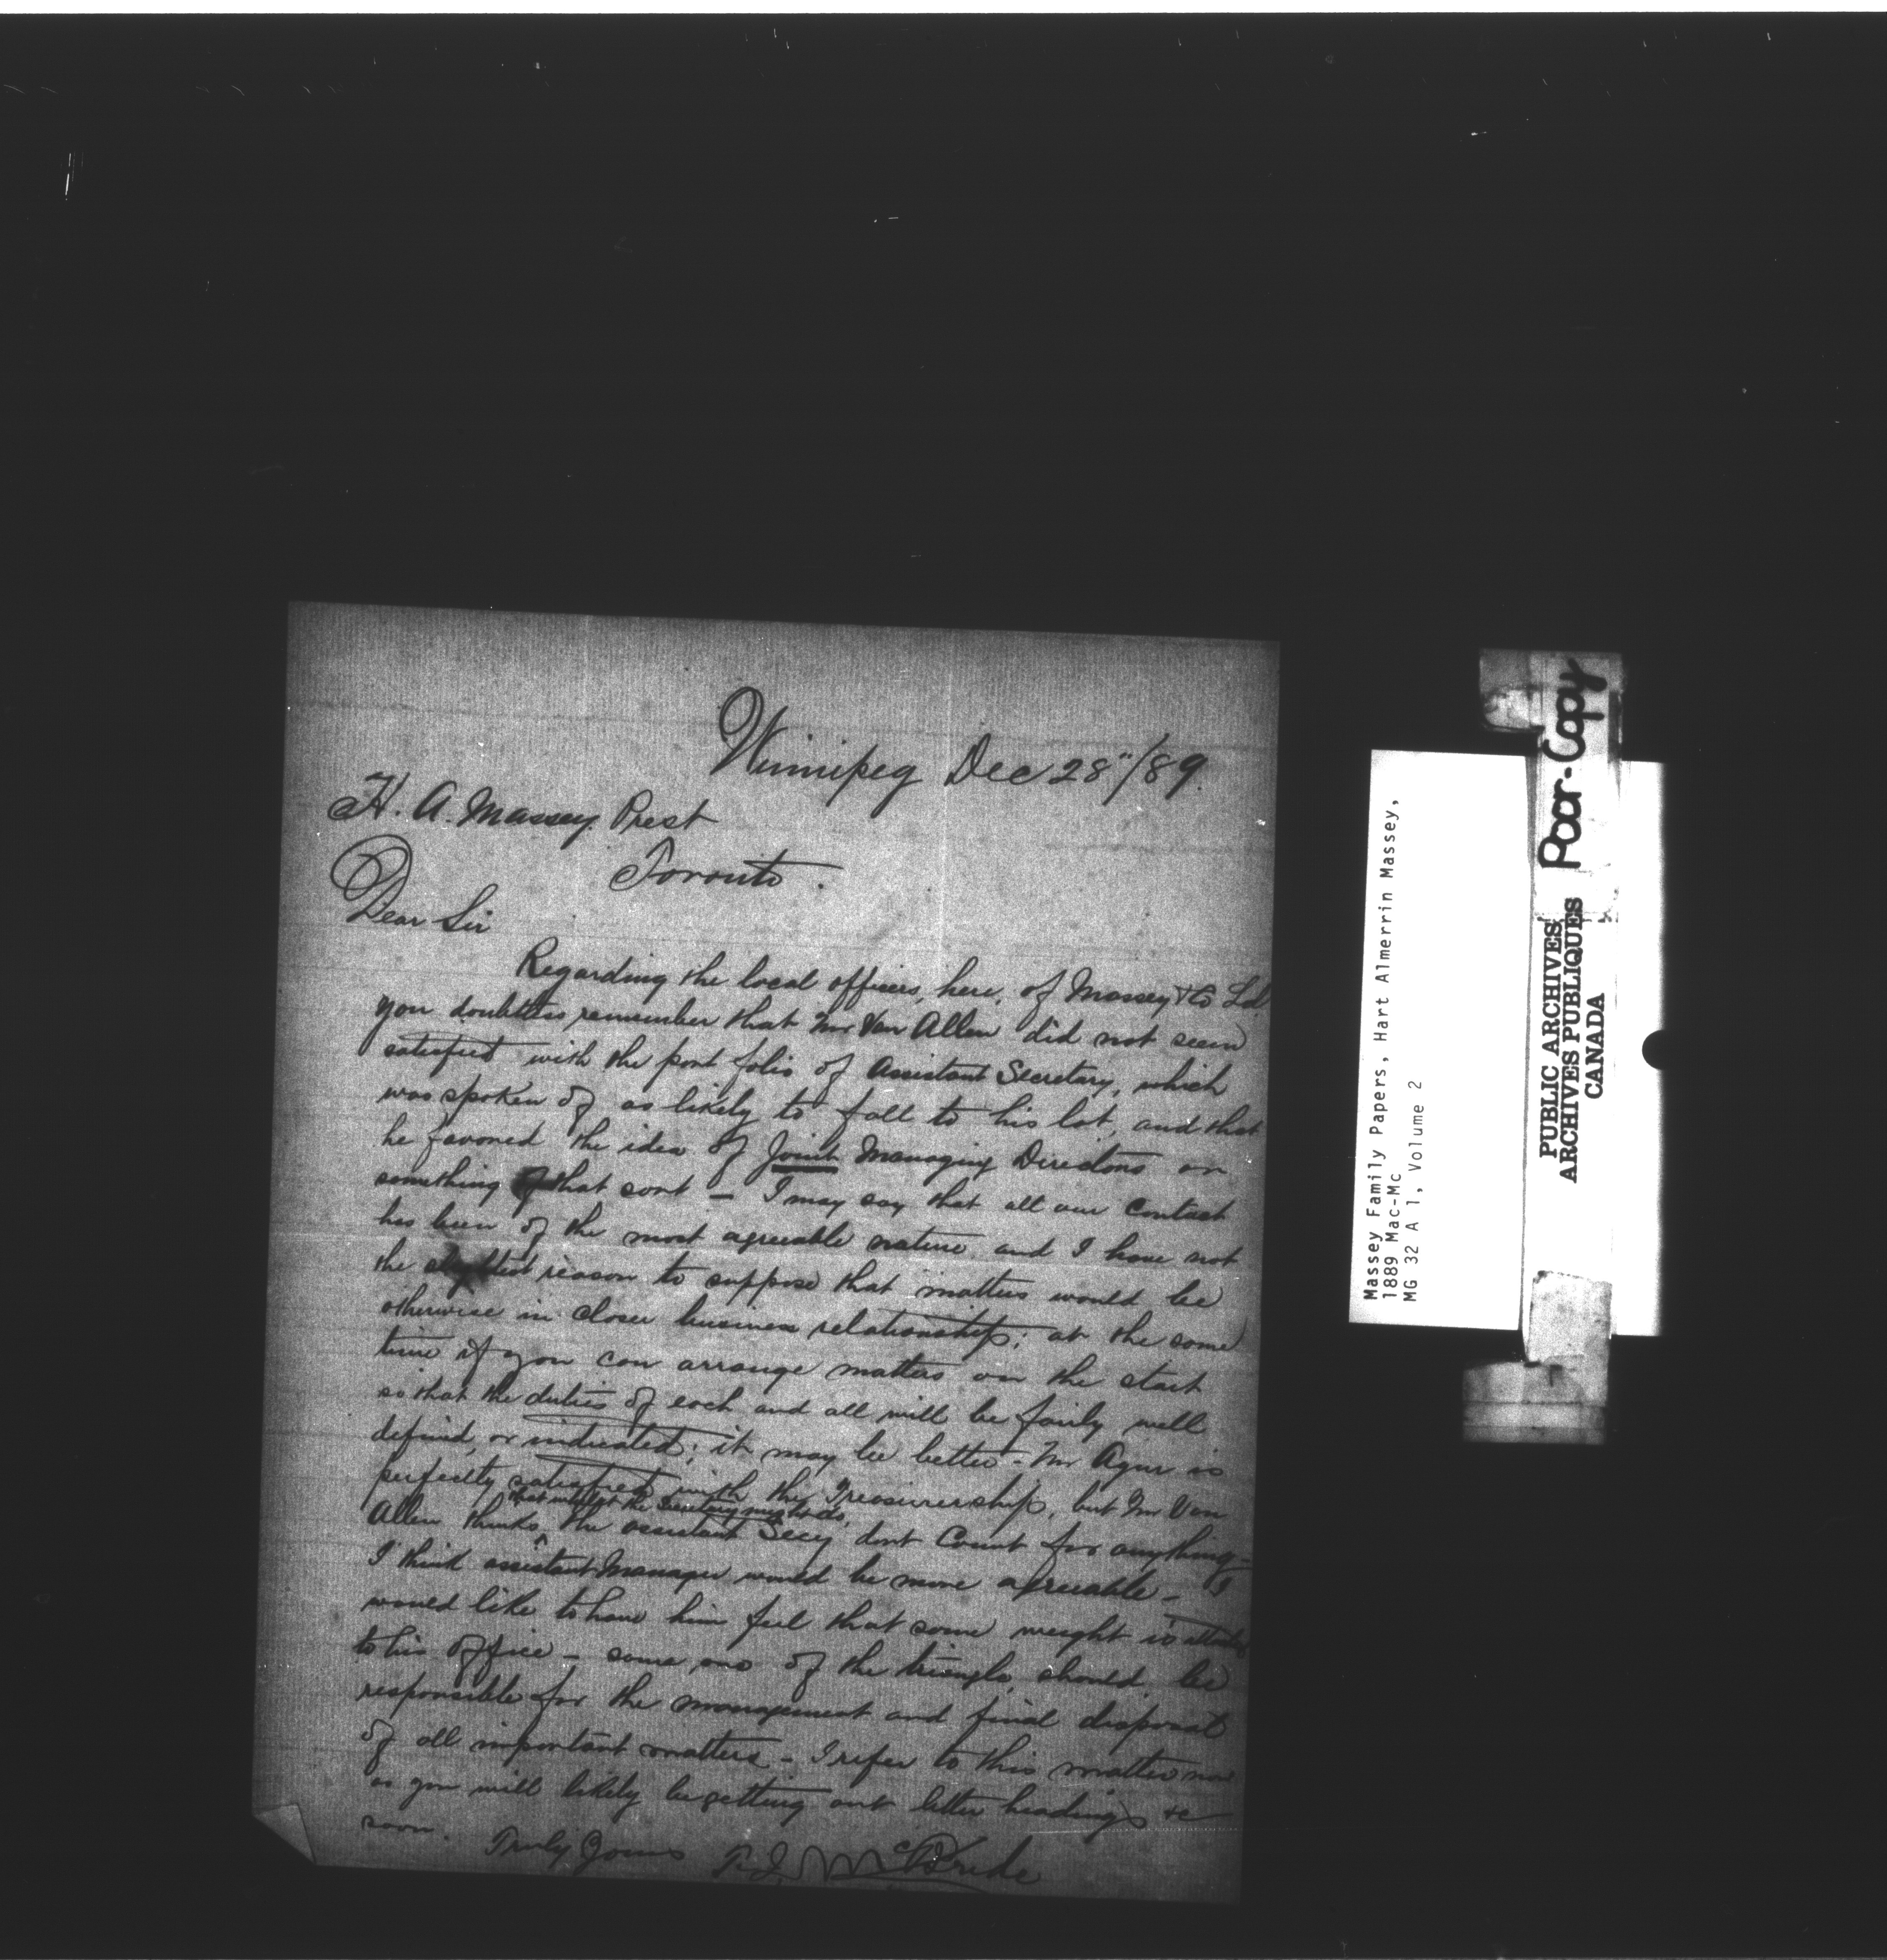 Winnipeg Dec 28"/89.
H. A. Massey. Prest
Toronto.
Dear Sir
Regarding the local officers, here, of Massey & Co Ld.
you doubtless remember that Mr Van Allen did not seem
satisfied with the port folio of Assistant Secretary, which
was spoken of as likely to fall to his lot, and that
he favored the idea of Joint Managing Directors or
something of that sort — I may say that all our contact
has been of the most agreeable nature and I have not
the slightest reason to suppose that matters would be
otherwise in closer business relationship; at the same
time if you can arrange matters on the start
so that the duties of each and all will be fairly well
defined, or indicated; it may be better - Mr Agur is
perfectly satisfied with the Treasurership, but Mr Van
that whilst the Secretary might do,
Allen thinks ^ the assistant Secy dont Count for anything -
I think assistant Manager would be more agreeable - I
would like to have him feel that some weight is attached
to his office - some one of the triangle, should, be
responsible for the management and final disposal
of all important matters - I refer to this matter now
as you will likely be getting out letter headings &c
soon.
Truly Yours T. J. McBride
Massey Family Papers, Hart Almerrin Massey,
1889 Mac-Mc
MG 32 A 1, Volume 2
Poor-Copy
PUBLIC ARCHIVES
ARCHIVES PUBLIQUES
CANADA